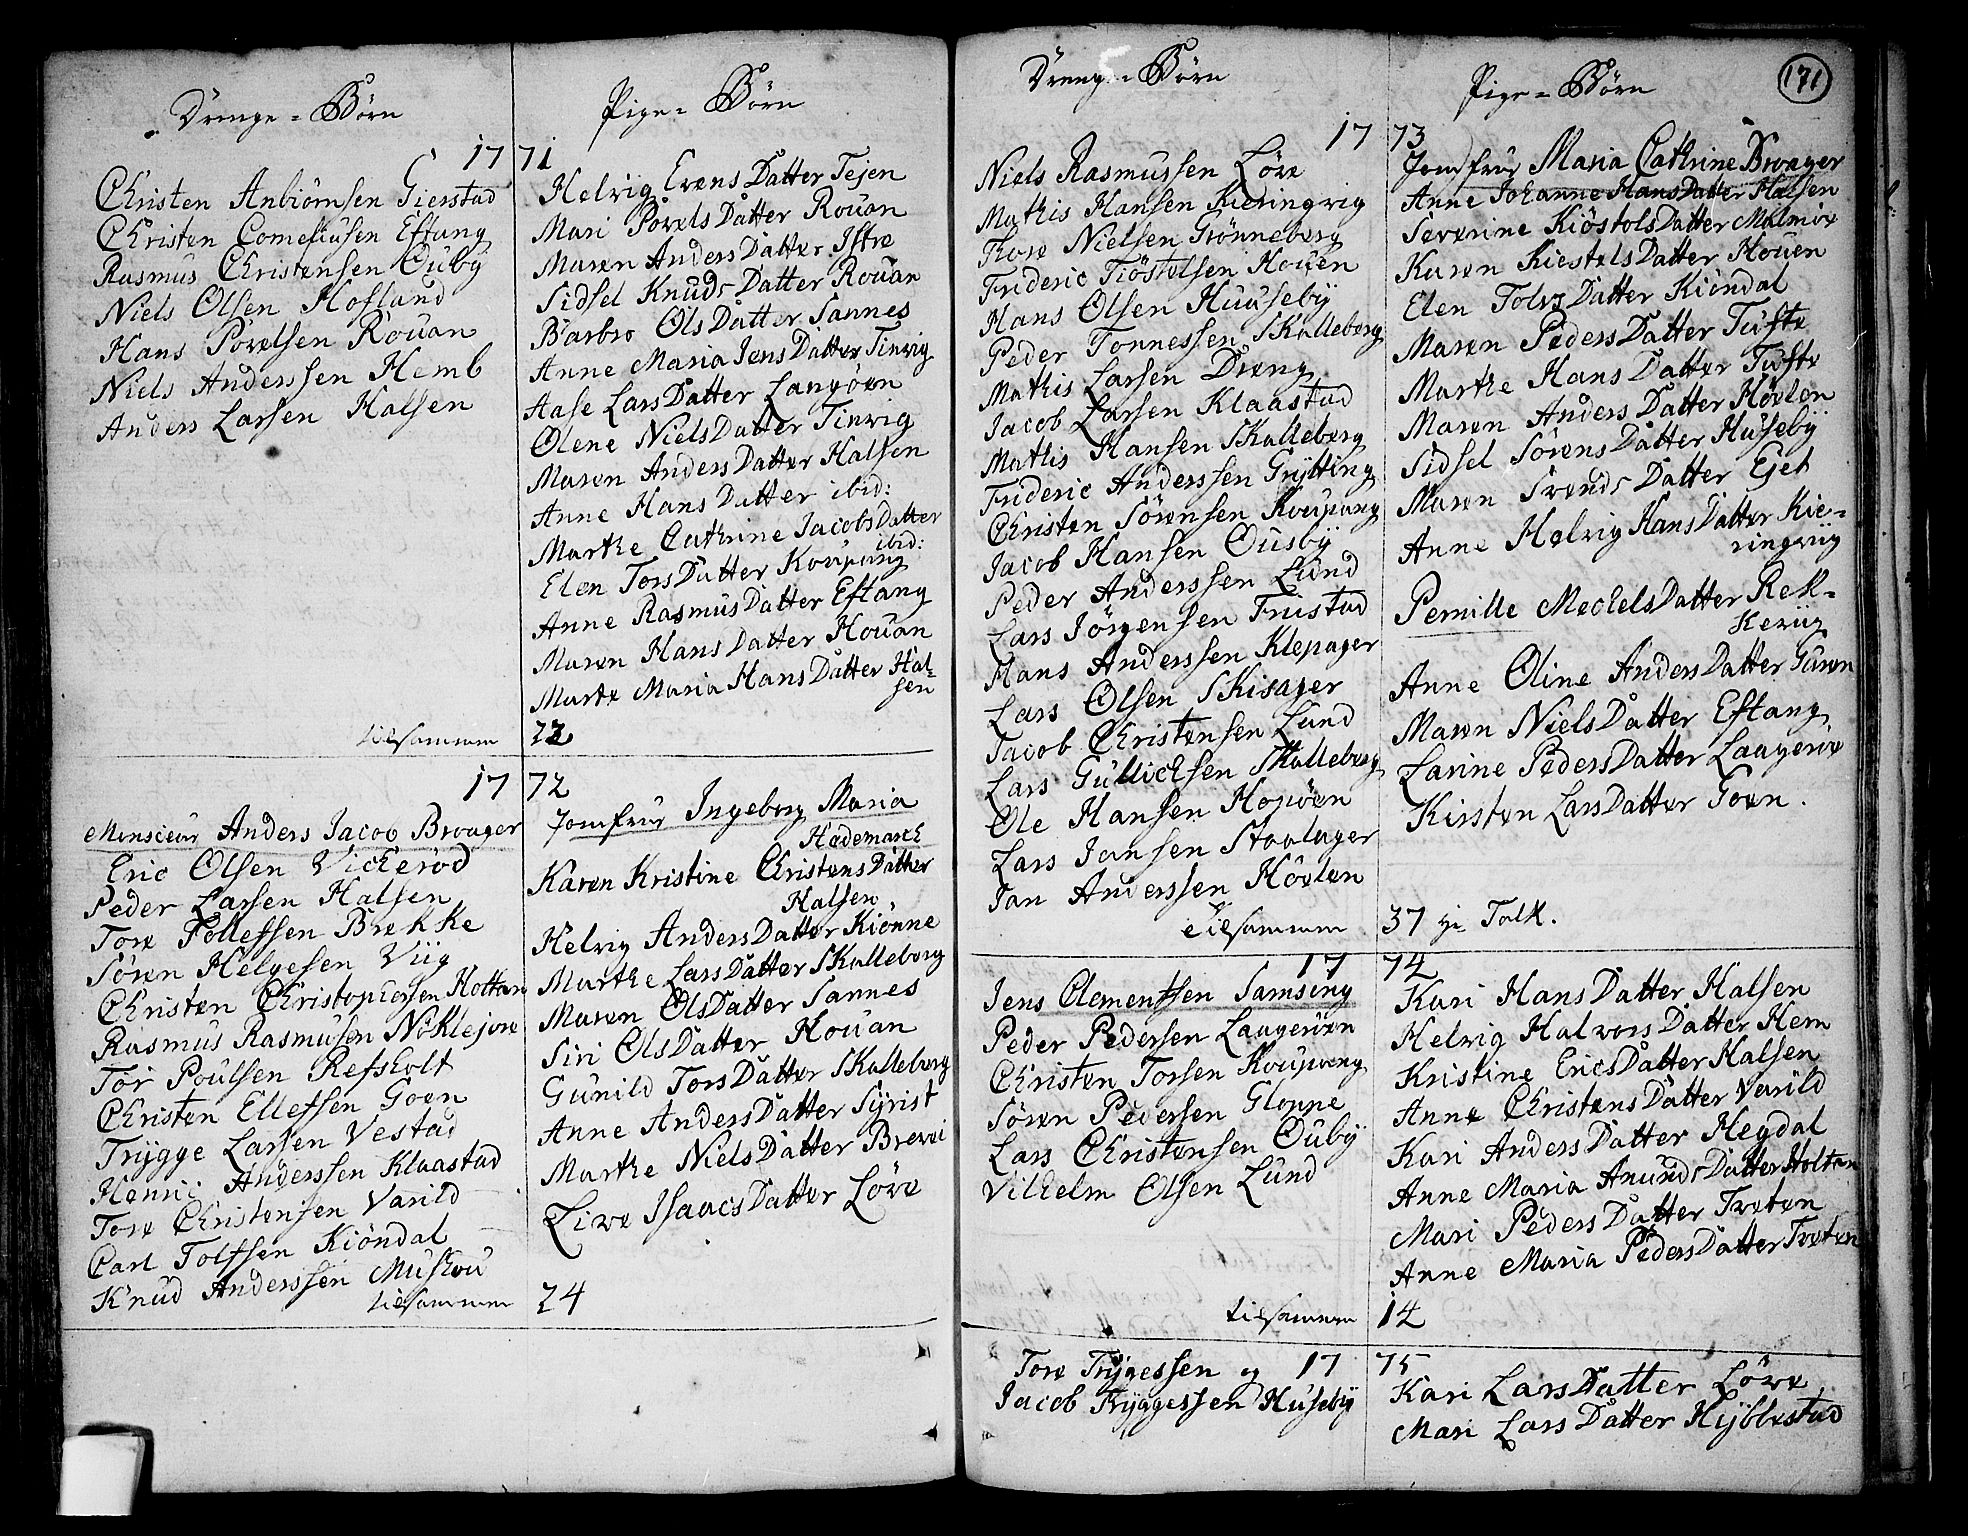 Drenge=Børn
Pige=Børn
17 71
Christen Anbiörnsen Gierstad
Christen Corneliusen Eftang
Rasmus Christensen Ouby
Niels Olsen Hofland
Hans Povelsen Rouan
Niels Anderssen Hemb
Anders Larsen Halsen
Helvig Evens Datter Tejen
Mari Povels Datter Rouan
Maren Anders Datter Istre
Sidsel Knuds Datter Rouan
Barbro Ols Datter Sannes
Anne Maria Jens Datter Tinvig
Aase Lars Datter Langöen
Olene Niels Datter Tinvig
Maren Anders Datter Halsen
Anne Hans Datter ibid:
Marthe Cathrine Jacobs Datter
ibid:
Elen Tors Datter Koupang
Anne Rasmus Datter Eftang
Maren Hans Datter Houan
Marte Maria Hans Datter Hal=
sen
tilsammen 22
17 72
Monsieur Anders Jacob Broager
Eric Olsen Vickeröd
Peder Larsen Halsen
Tore Tollefsen Brekke
Sören Helgesen Viig
Christen Christophersen Holtan
Rasmus Rasmusen Nöklejore
Tor Poulsen Refsholt
Christen Ellefsen Goen
Trygge Larsen Vestad
Henric Anderssen Klaastad
Tore Christensen Varild
Carl Tolfsen Kiöndal
Knud Anderssen Muskou
Jomfrue Ingeborg Maria
Hademarch
Karen Kristine Christens Datter
Halsen
Helvig Anders Datter Kiönne
Marthe Lars Datter Skalleberg
Maren Ols Datter Sannes
Siri Ols Datter Houan
Gunild Tors Datter Skalleberg
Anne Anders Datter Syrist
Marthe Niels Datter Brevei
Live Isaacs Datter Löve
tilsammen 24
Drenge=Børn
Pige=Børn
171
17 73
Niels Rasmussen Löve
Mathis Hansen Kieringvig
Tore Nielsen Grönneberg
Frideric Tiöstelsen Houen
Hans Olsen Huuseby
Peder Tonnessen Skalleberg
Mathis Larsen Dreng
Jacob Larsen Klaastad
Mathis Hansen Skalleberg
Frideric Anderssen Grytting
Christen Sörensen Koupang
Jacob Hansen Ousby
Peder Anderssen Lund
Lars Jörgensen Fristad
Hans Anderssen Klepager
Lars Olsen Skisager
Jacob Christensen Lund
Lars Gullichsen Skalleberg
Ole Hansen Hopöen
Lars Jansen Staalager
Jan Anderssen Hövlen
Jomfrue Maria Cathrine Broager
Anne Johanne Hans Datter Halsen
Severine Kiöstols Datter Malmöe
Karen Kiestels Datter Houen
Elen Tolvs Datter Kiöndal
Maren Peders Datter Tufte
Marthe Hans Datter Tufte
Maren Anders Datter Hövlen
Sidsel Sörens Datter Huseby
Maren Svends Datter Eget
Anne Helvig Hans Datter Kie=
ringviig
Pernille Mechels Datter Rek=
keviig
Anne Oline Anders Datter Guren
Maren Niels Datter Eftang
Larine Peders Datter Laageröe
Kirsten Lars Datter Goen.
tilsammen 37 Talk.
17 74
Jens Clementsen Samsing
Peder Pedersen Laageröen
Christen Torsen Koupang
Sören Pedersen Gloppe
Lars Christensen Ouby
Vilhelm Olsen Lund
Kari Hans Datter Halsen
Helvig Halvors Datter Hem
Kristine Erics Datter Halsen
Anne Christens Datter Varild
Kari Anders Datter Hegdal
Anne Maria Anunds Datter Holtan
Mari Peders Datter Treten
Anne Maria Peders Datter Treten
tilsammen 14
17 75
Tore Trygessen og
Jacob Tryggessen Huseby
Kari Lars Datter Löve
Mari Lars Datter Hybbestad